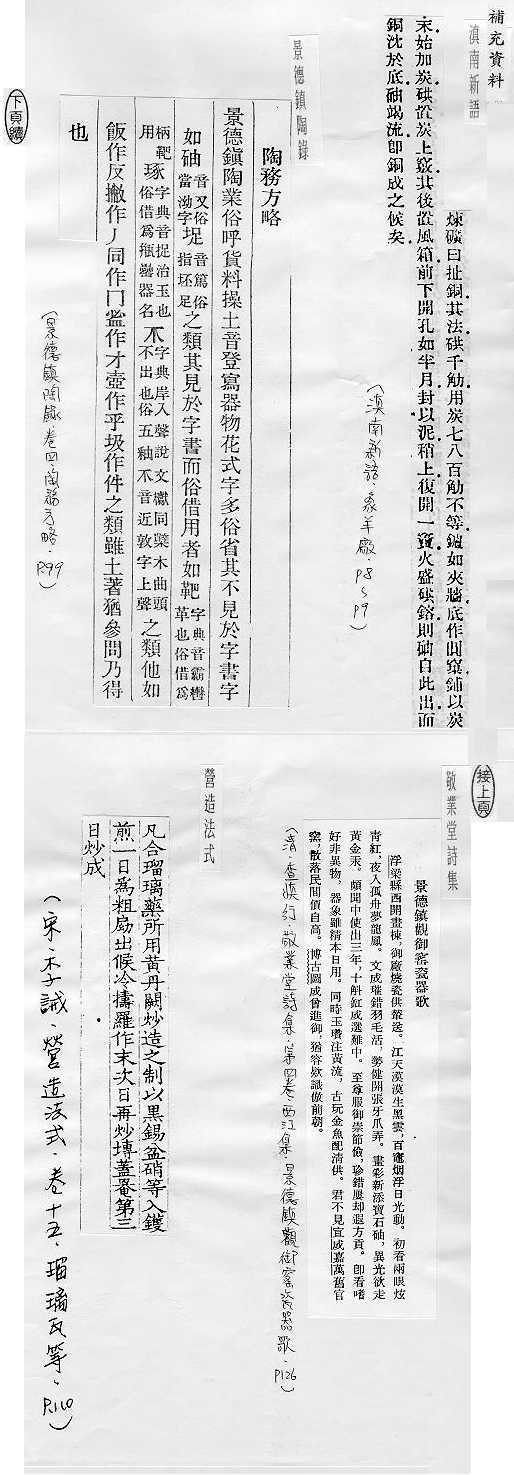 補充資料
滇南新語
煉礦曰扯銅其法硔千觔用炭七八百觔不等鑪如夾牆底作圓窠鋪以炭
末始加炭硔置炭上竅其後置風箱前下開孔如半月封以泥稍上復開一竇火盛硔鎔則䂵自此出而
銅沈於底䂵竭流卽銅成之候矣
(滇南新語．象羊廠．P8~P9)
景德鎮陶錄
陶務方略
景德鎭陶業俗呼貨料操土音登寫器物花式字多俗省其不見於字書字
如䂵音又俗當泑字𡉟音篤俗指坯足之類其見於字書而俗借用者如靶字典音霸轡革也俗借為
柄靶琢字典音捉治玉也俗借為瓶罍器名不字典岸入聲說文㰚同櫱木曲頭不出也俗五釉不音近敦字上聲之類他如
飯作反撇作丿同作冂盆作才壺作乎圾作件之類雖土著猶參問乃得
也
(景德鎮陶錄卷四．陶務方略．P.99)
下頁續
接上頁
敬業堂詩集
景德鎮觀御窰瓷器歌
浮梁縣西開畫棟，御廠燒瓷供罃送。江天漠漠生黑雲，百竈烟浮日光動。初看兩眼炫
青紅，夜入孤舟夢龍鳳。文成璀錯羽毛活，勢健開張牙爪弄。畫彩新添寶石釉，異光欲走
黃金汞。頗聞中使出三年，十斛缸成選難中。至尊服御崇節儉，珍錯屢却遐方貢。卽看嗜
好非異物，器象雖精本日用。同時玉瓚注黃流，古玩金魚配清供。君不見宣成嘉萬舊官
窰，散落民間價自高。博古圖成曾進御，猶容欵識倣前朝。
(清．查慎行．敬業堂詩集．第四卷．西江集．景德鎮觀御窰瓷器歌．P126)
營造法式
凡合瑠璃藥所用黃丹闕炒造之制以黑錫盆硝等入鑊
煎一日爲粗扇出候冷擣羅作末次日再炒塼蓋罨第三
日炒成
(宋．李誡．營造法式．卷十五．瑠璃瓦等．P.110)